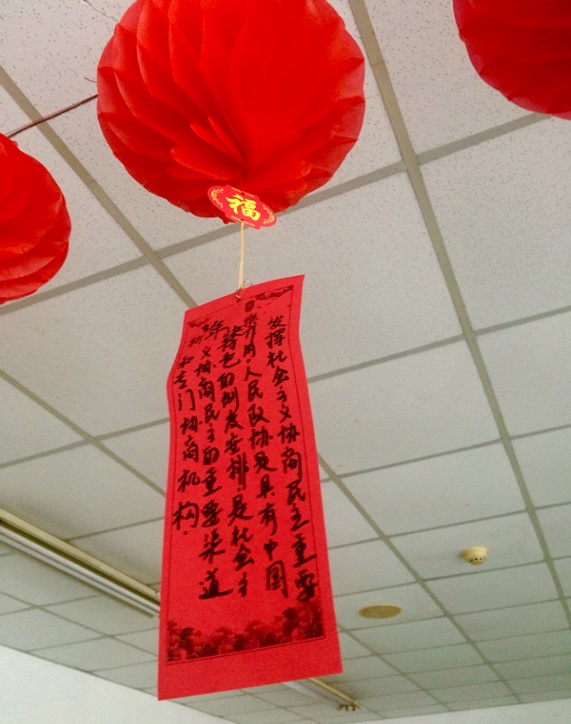 福
发挥社会主义协商民主重要
作用。人民政协是具有中国
特色的制度安排，是社会主
义协商民主的重要渠道
和专门协商机构。